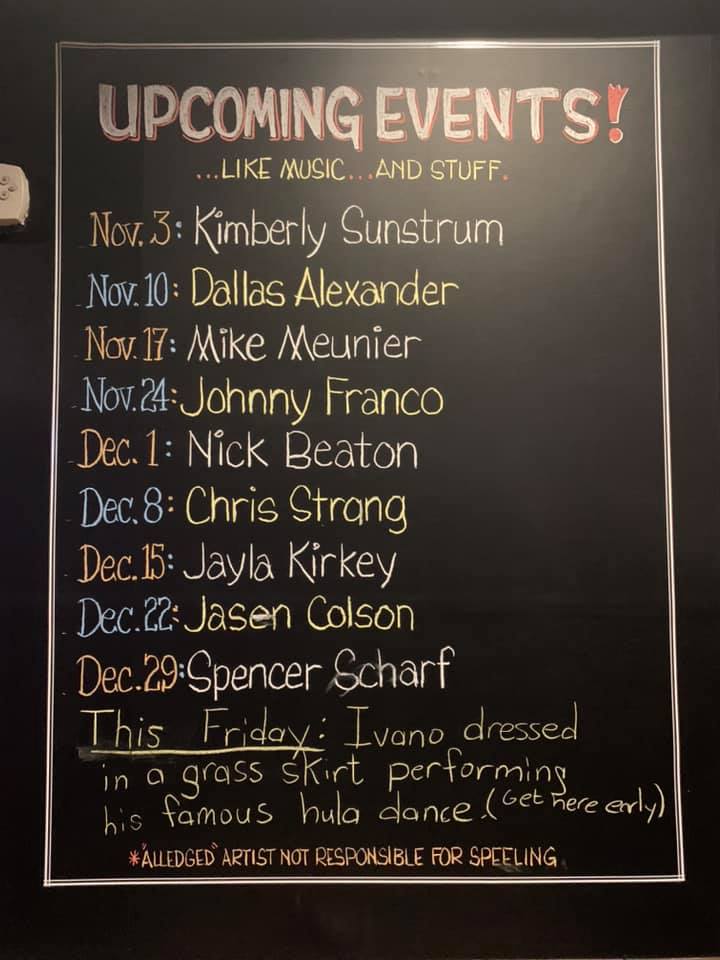 UPCOMING EVENTS!
...LIKE MUSIC...AND STUFF.
Nov. 3: Kimberly Sunstrum
Nov. 10: Dallas Alexander
Nov. 17: Mike Meunier
Nov. 24: Johnny Franco
Dec. 1: Nick Beaton
Dec. 8: Chris Strang
Dec. 15: Jayla Kirkey
Dec. 22: Jasen Colson
Dec. 29: Spencer Scharf
This Friday: Ivano dressed
in a grass skirt performing
his famous hula dance. (Get here early)
*"ALLEDGED" ARTIST NOT RESPONSIBLE FOR SPEELING